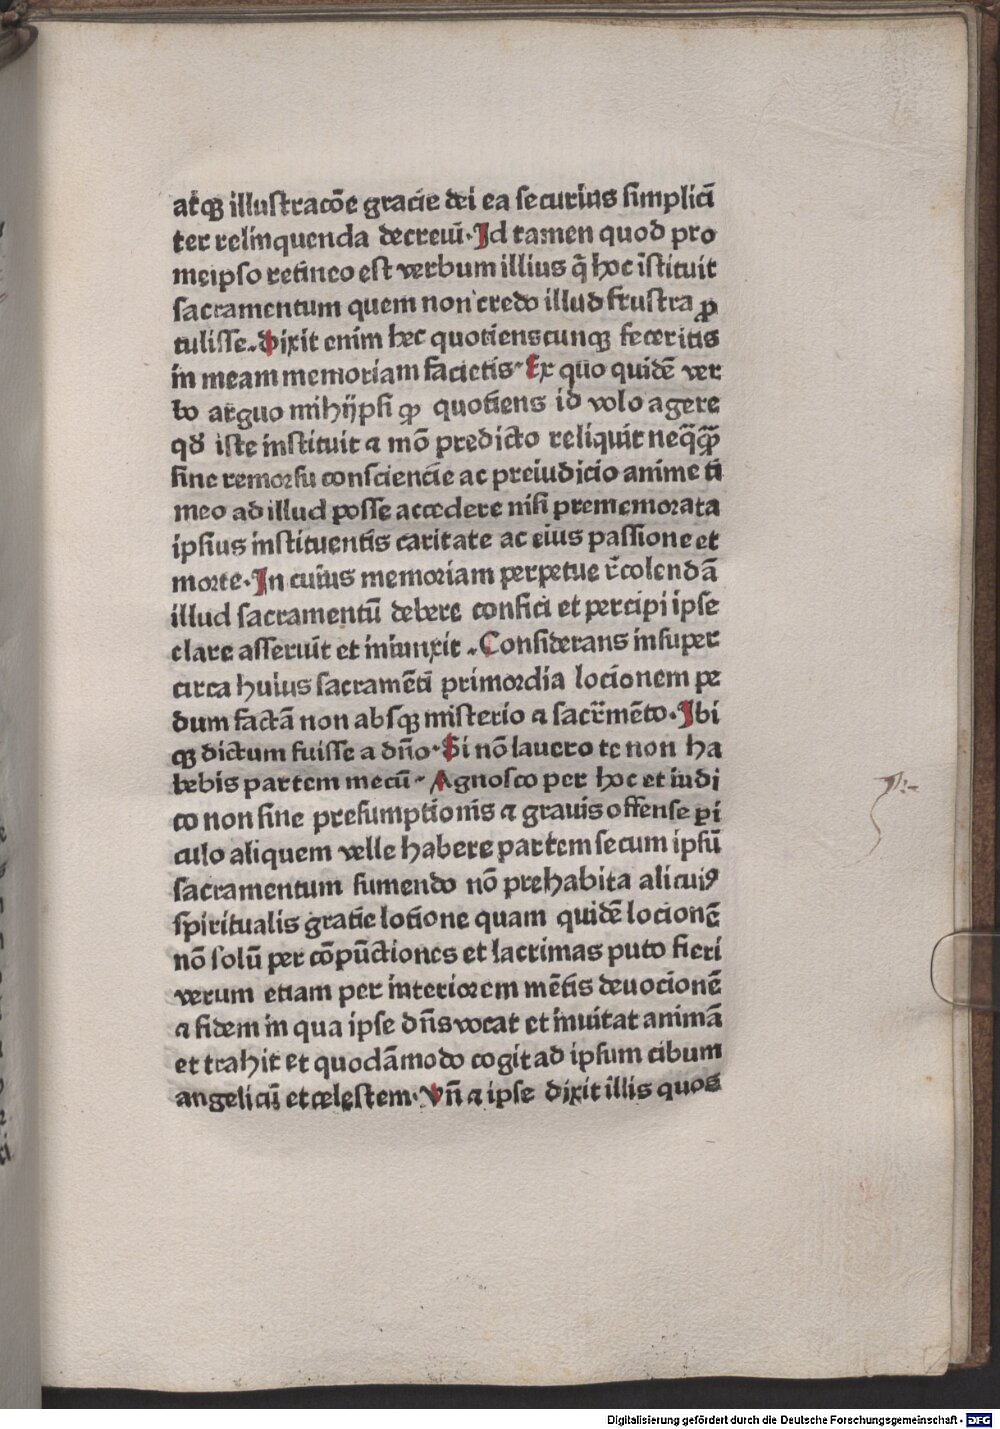 atqꝫ illustracōe gracie dei ea securius simplici
ter relinquenda decreui. Id tamen quod pro
meipso retineo est verbum illius q̄ hoc īstituit
sacramentum quem non credo illud frustra ꝓ
tulisse. Dixit enim hec quotienscunqꝫ feceritis
in meam memoriam facietis. Ex quo quidē ver
bo arguo mihijpsi ꝙ quotiens id volo agere
qd̓ iste instituit ⁊ mō predicto reliquit neq̄q̄ꝫ
sine remorsu consciencie ac preiudicio anime ti
meo ad illud posse accedere nisi prememorata
ipsius instituentis caritate ac eius passione et
morte. In cuius memoriam perpetue r̄colendā
illud sacramentū debere confici et percipi ipse
clare asseruit et iniunxit. Considerans insuper
circa huius sacramēti primordia locionem pe
dum factā non absqꝫ misterio ⁊ sacr̄mēto. Ibi
qꝫ dictum fuisse a dn̄o. Si nō lauero te non ha
bebis partem mecū. Agnosco per hoc et iudi
co non sine presumptionis ⁊ grauis offense ꝑi
culo aliquem velle habere partem secum ipsū
sacramentum sumendo nō prehabita alicuiꝰ
spiritualis gratie lotione quam quidē locionē
nō solū per cōpūctiones et lacrimas puto fieri
verum etiam per interiorem mētis deuocionē
⁊ fidem in qua ipse dn̄s vocat et inuitat animā
et trahit et quodāmodo cogit ad ipsum cibum
angelicū et celestem. Vn̄ ⁊ ipse dixit illis quos
Digitalisierung gefördert durch die Deutsche Forschungsgemeinschaft - DFG